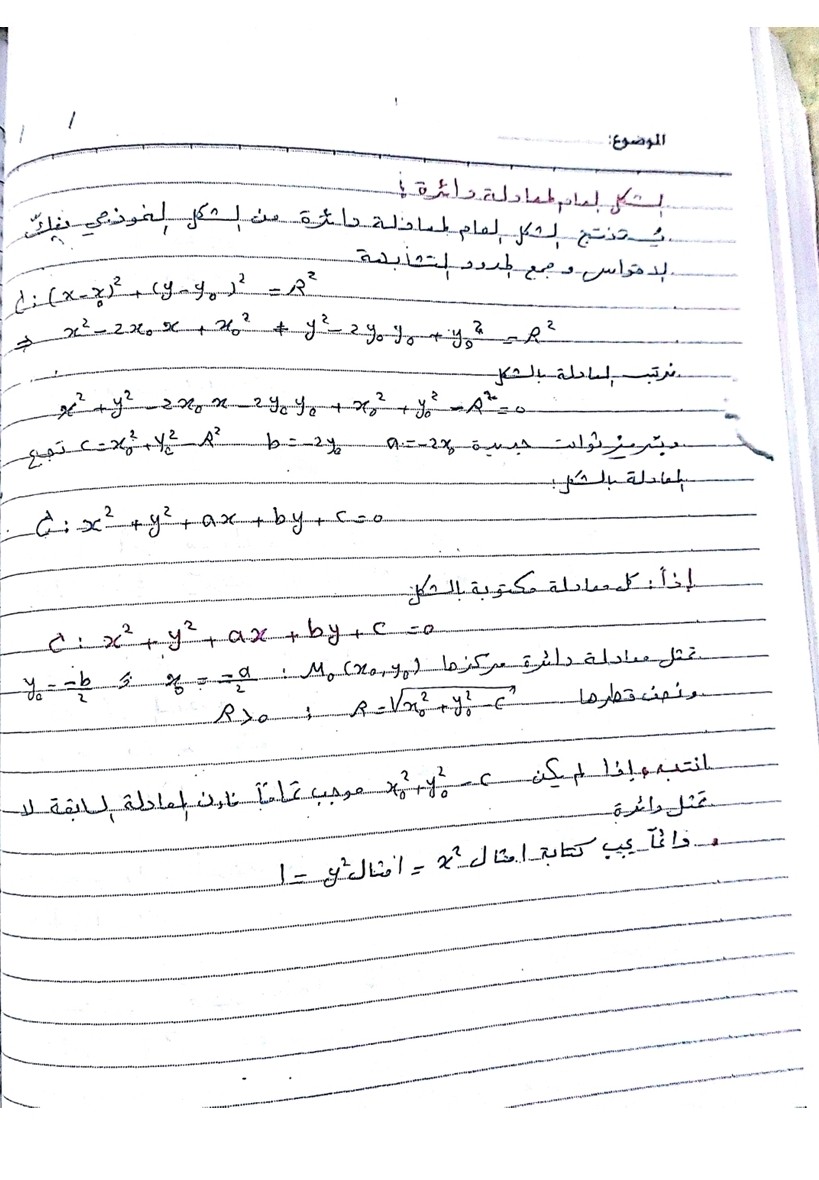 الموضوع:
الشكل العام لمعادلة دائرة :
يُستنتج الشكل العام لمعادلة دائرة من الشكل النموذجي بفكّ
الاقواس و جمع الحدود المتشابهة
C : (x-x₀)² + (y-y₀)² = R²
⇒ x² - 2x₀x + x₀² + y² - 2y₀y₀ + y₀² = R²
نرتب المعادلة بالشكل
x² + y² - 2x₀x - 2y₀y₀ + x₀² + y₀² - R² = 0
ثوابت جديدة a = -2x₀ b = -2y₀ c = x₀² + y₀² - R² تصبح
المعادلة بالشكل:
C : x² + y² + ax + by + c = 0
إذاً : كل معادلة مكتوبة بالشكل
C : x² + y² + ax + by + c = 0
تمثل معادلة دائرة مركزها M₀(x₀, y₀) : x₀ = -a/2 ; y₀ = -b/2
ونصف قطرها R = √(x₀² + y₀² - c) ; R > 0
انتبه وإذا لم يكن x₀² + y₀² - c موجب تماماً فإن المعادلة السابقة لا
تمثل دائرة
. دائماً يجب كتابة امثال x² = امثال y² = 1